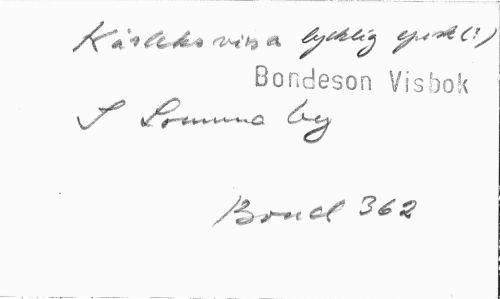 Kärleksvisa lycklig episk (?)
Bondeson Visbok
I Lomma by
Bond 362